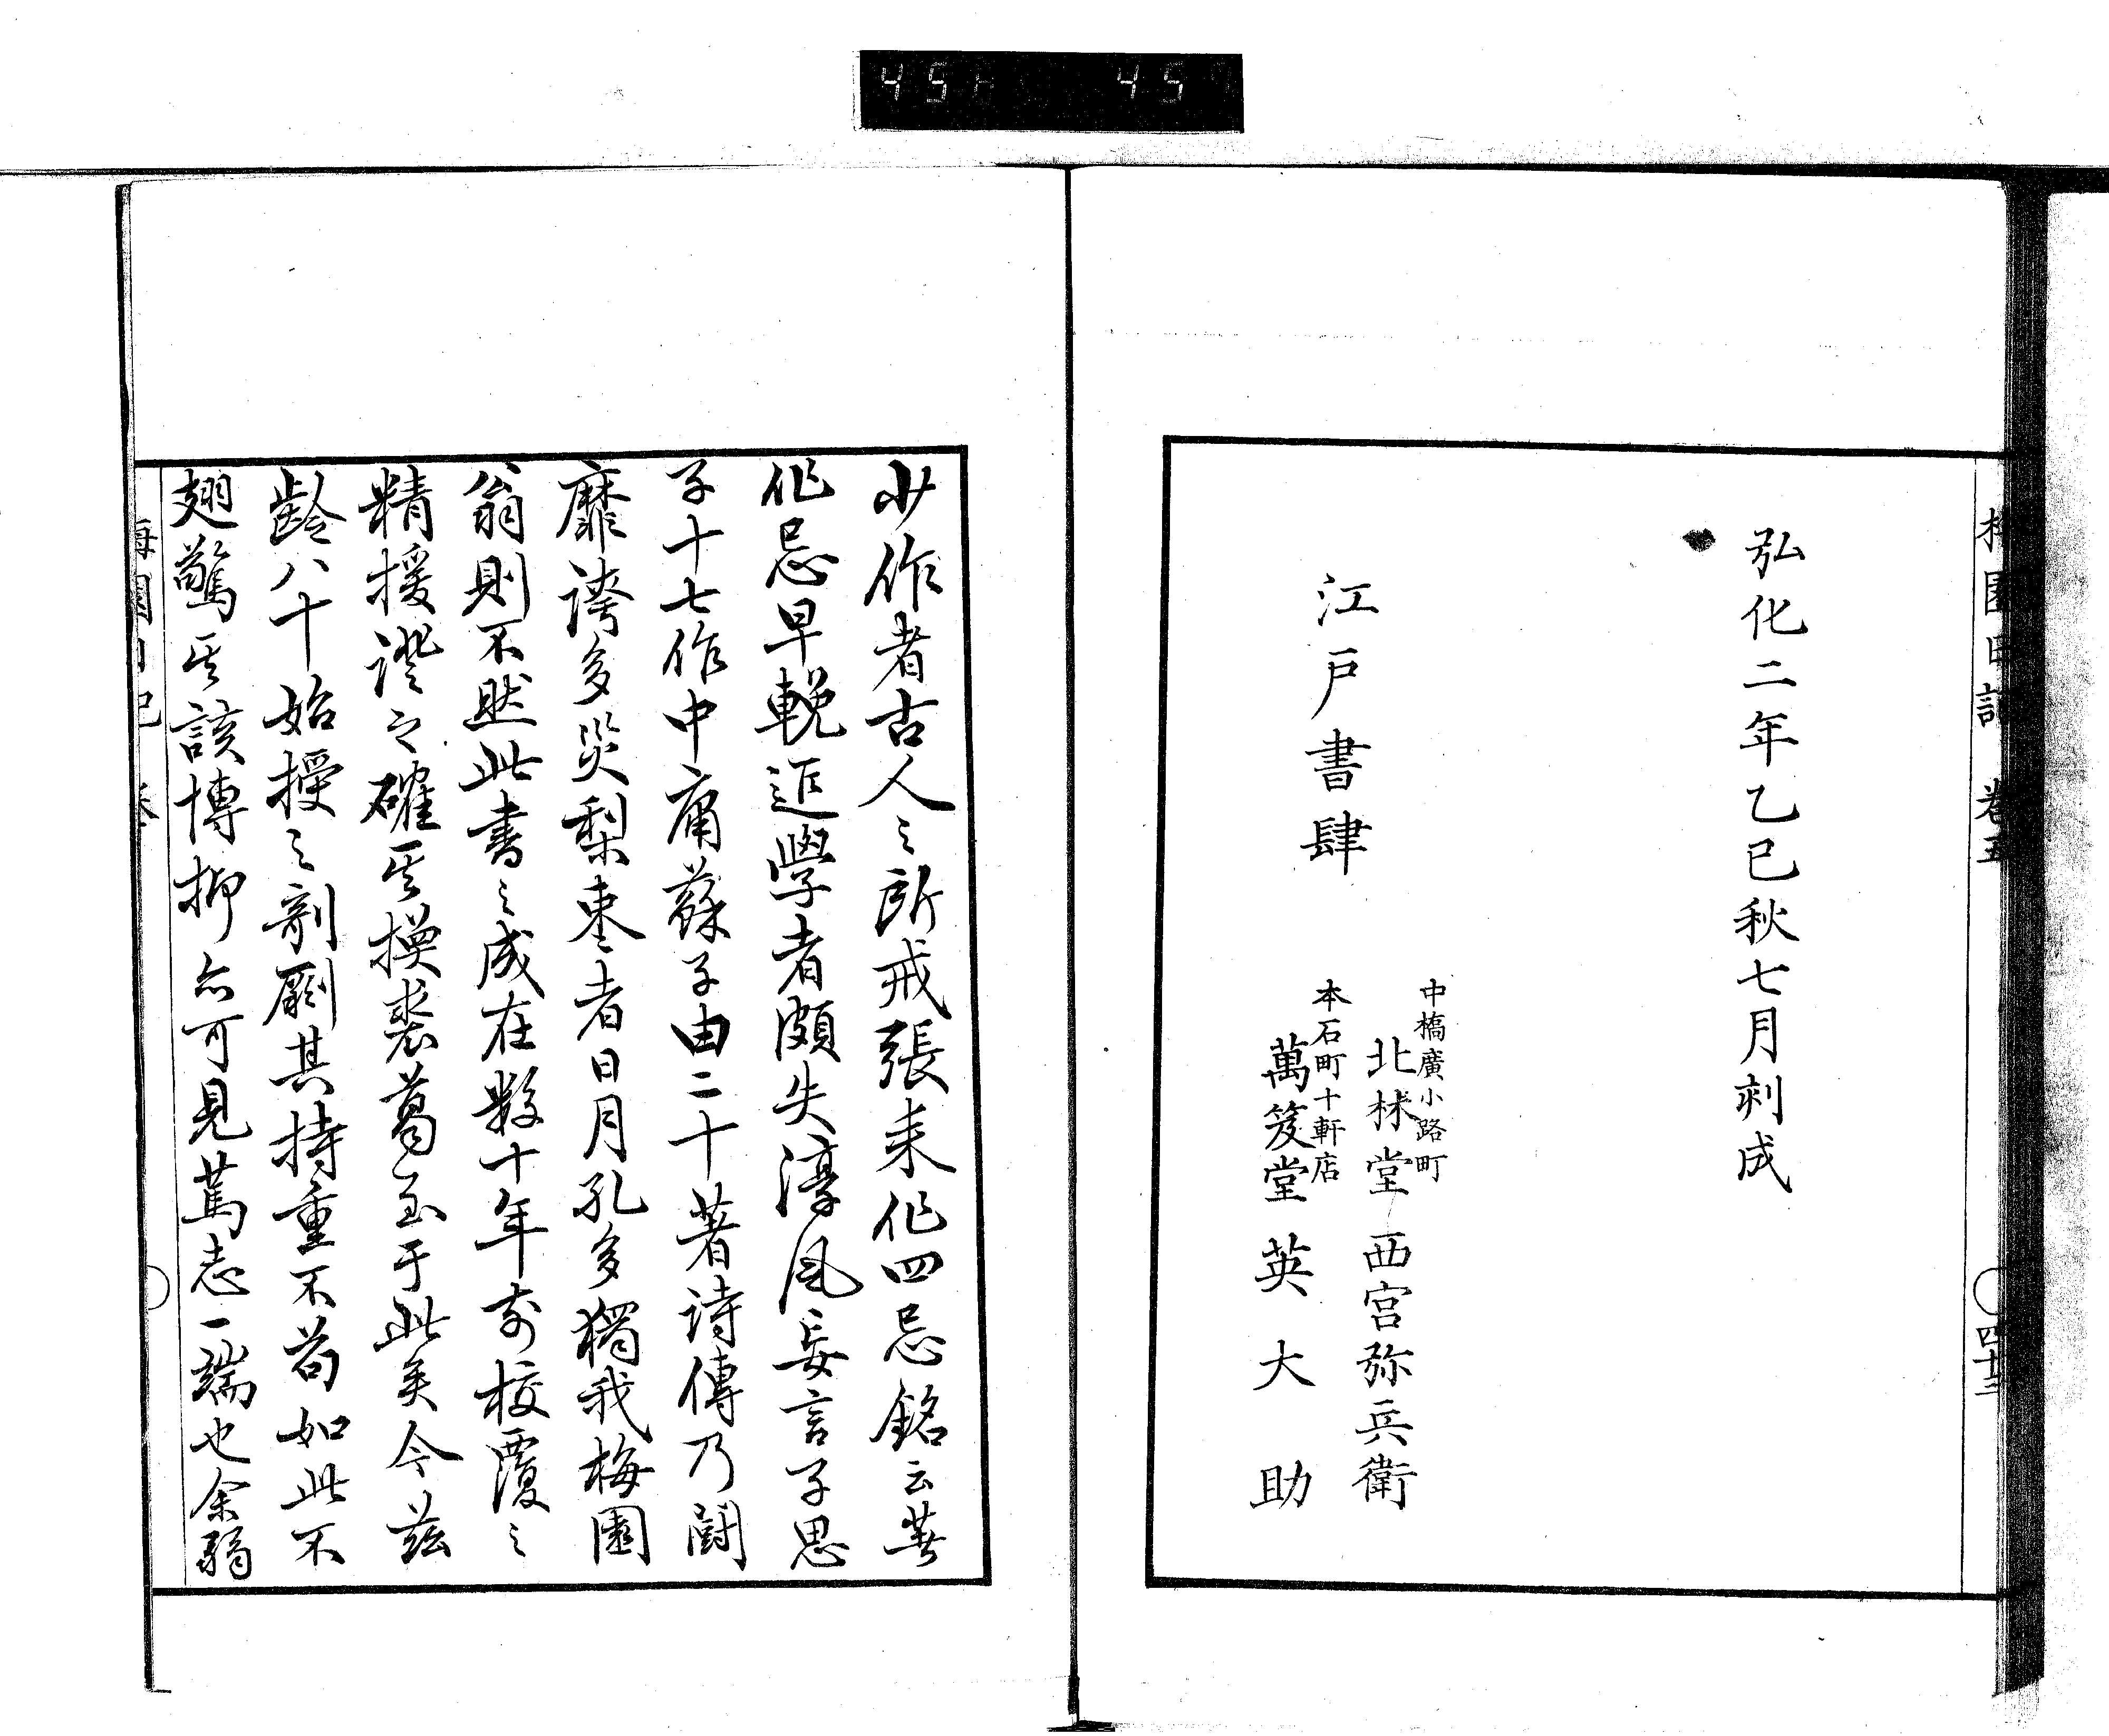 弘化二年乙巳秋七月刺成
江戸書肆
中橋廣小路町
北林堂 西宮弥兵衛
本石町十軒店
萬笈堂 英大助
梅園日記 卷五 四十三
少作者古人之所戒張耒作四忌銘云著
作忌早輓近學者頗失淳風妄言子思
子十七作中庸蘇子由二十著詩傳乃鬪
靡誇多災梨棗者日月孔多獨我梅園
翁則不然此書之成在數十年前校覆之
精援證之確其換裘葛至于此矣今茲
齡八十始授之剞劂其持重不苟如此不
翅驚其該博抑亦可見篤志一端也余弱